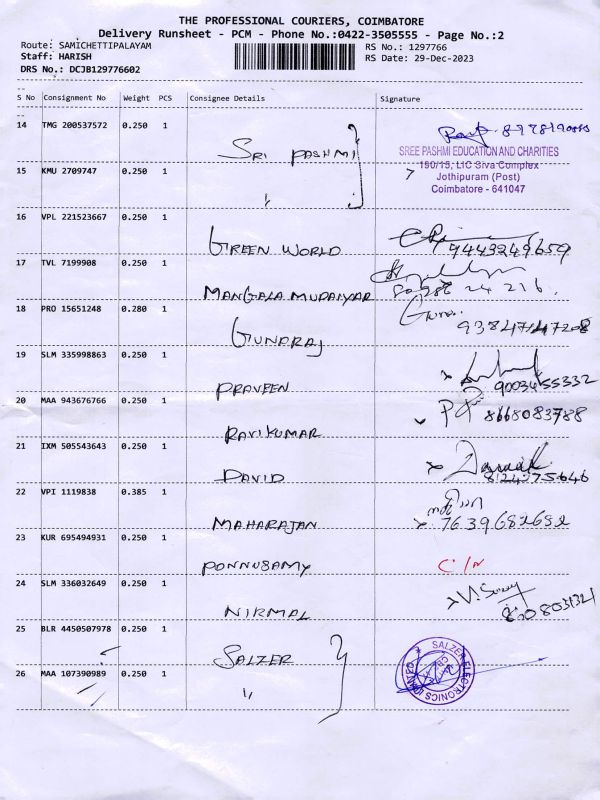 THE PROFESSIONAL COURIERS, COIMBATORE
Delivery Runsheet - PCM - Phone No.:0422-3505555 - Page No.:2
Route: SAMICHETTIPALAYAM RS No.: 1297766
Staff: HARISH RS Date: 29-Dec-2023
DRS No.: DCJB129776602
S No Consignment No Weight PCS Consignee Details Signature
14 TMG 200537572 0.250 1 SRI PASHMI
SREE PASHMI EDUCATION AND CHARITIES
190/15, LIC Siva Complex
Jothipuram (Post)
Coimbatore - 641047
15 KMU 2709747 0.250 1 "
16 VPL 221523667 0.250 1 GREEN WORLD 9443249659
17 TVL 7199908 0.250 1 MANGALA MUDAIYAR
18 PRO 15651248 0.280 1 GUNDRAJ
19 SLM 335998863 0.250 1 PRAVEEN 9003455332
20 MAA 943676766 0.250 1 RAVIKUMAR 8668083788
21 IXM 505543643 0.250 1 DAVID
22 VPI 1119838 0.385 1 MAHARAJAN 7639682652
23 KUR 695494931 0.250 1 PONNUSAMY
24 SLM 336032649 0.250 1 NIRMAL
25 BLR 4450507978 0.250 1 SALZER
SALZER ELECTRONICS LIMITED
26 MAA 107390989 0.250 1 "